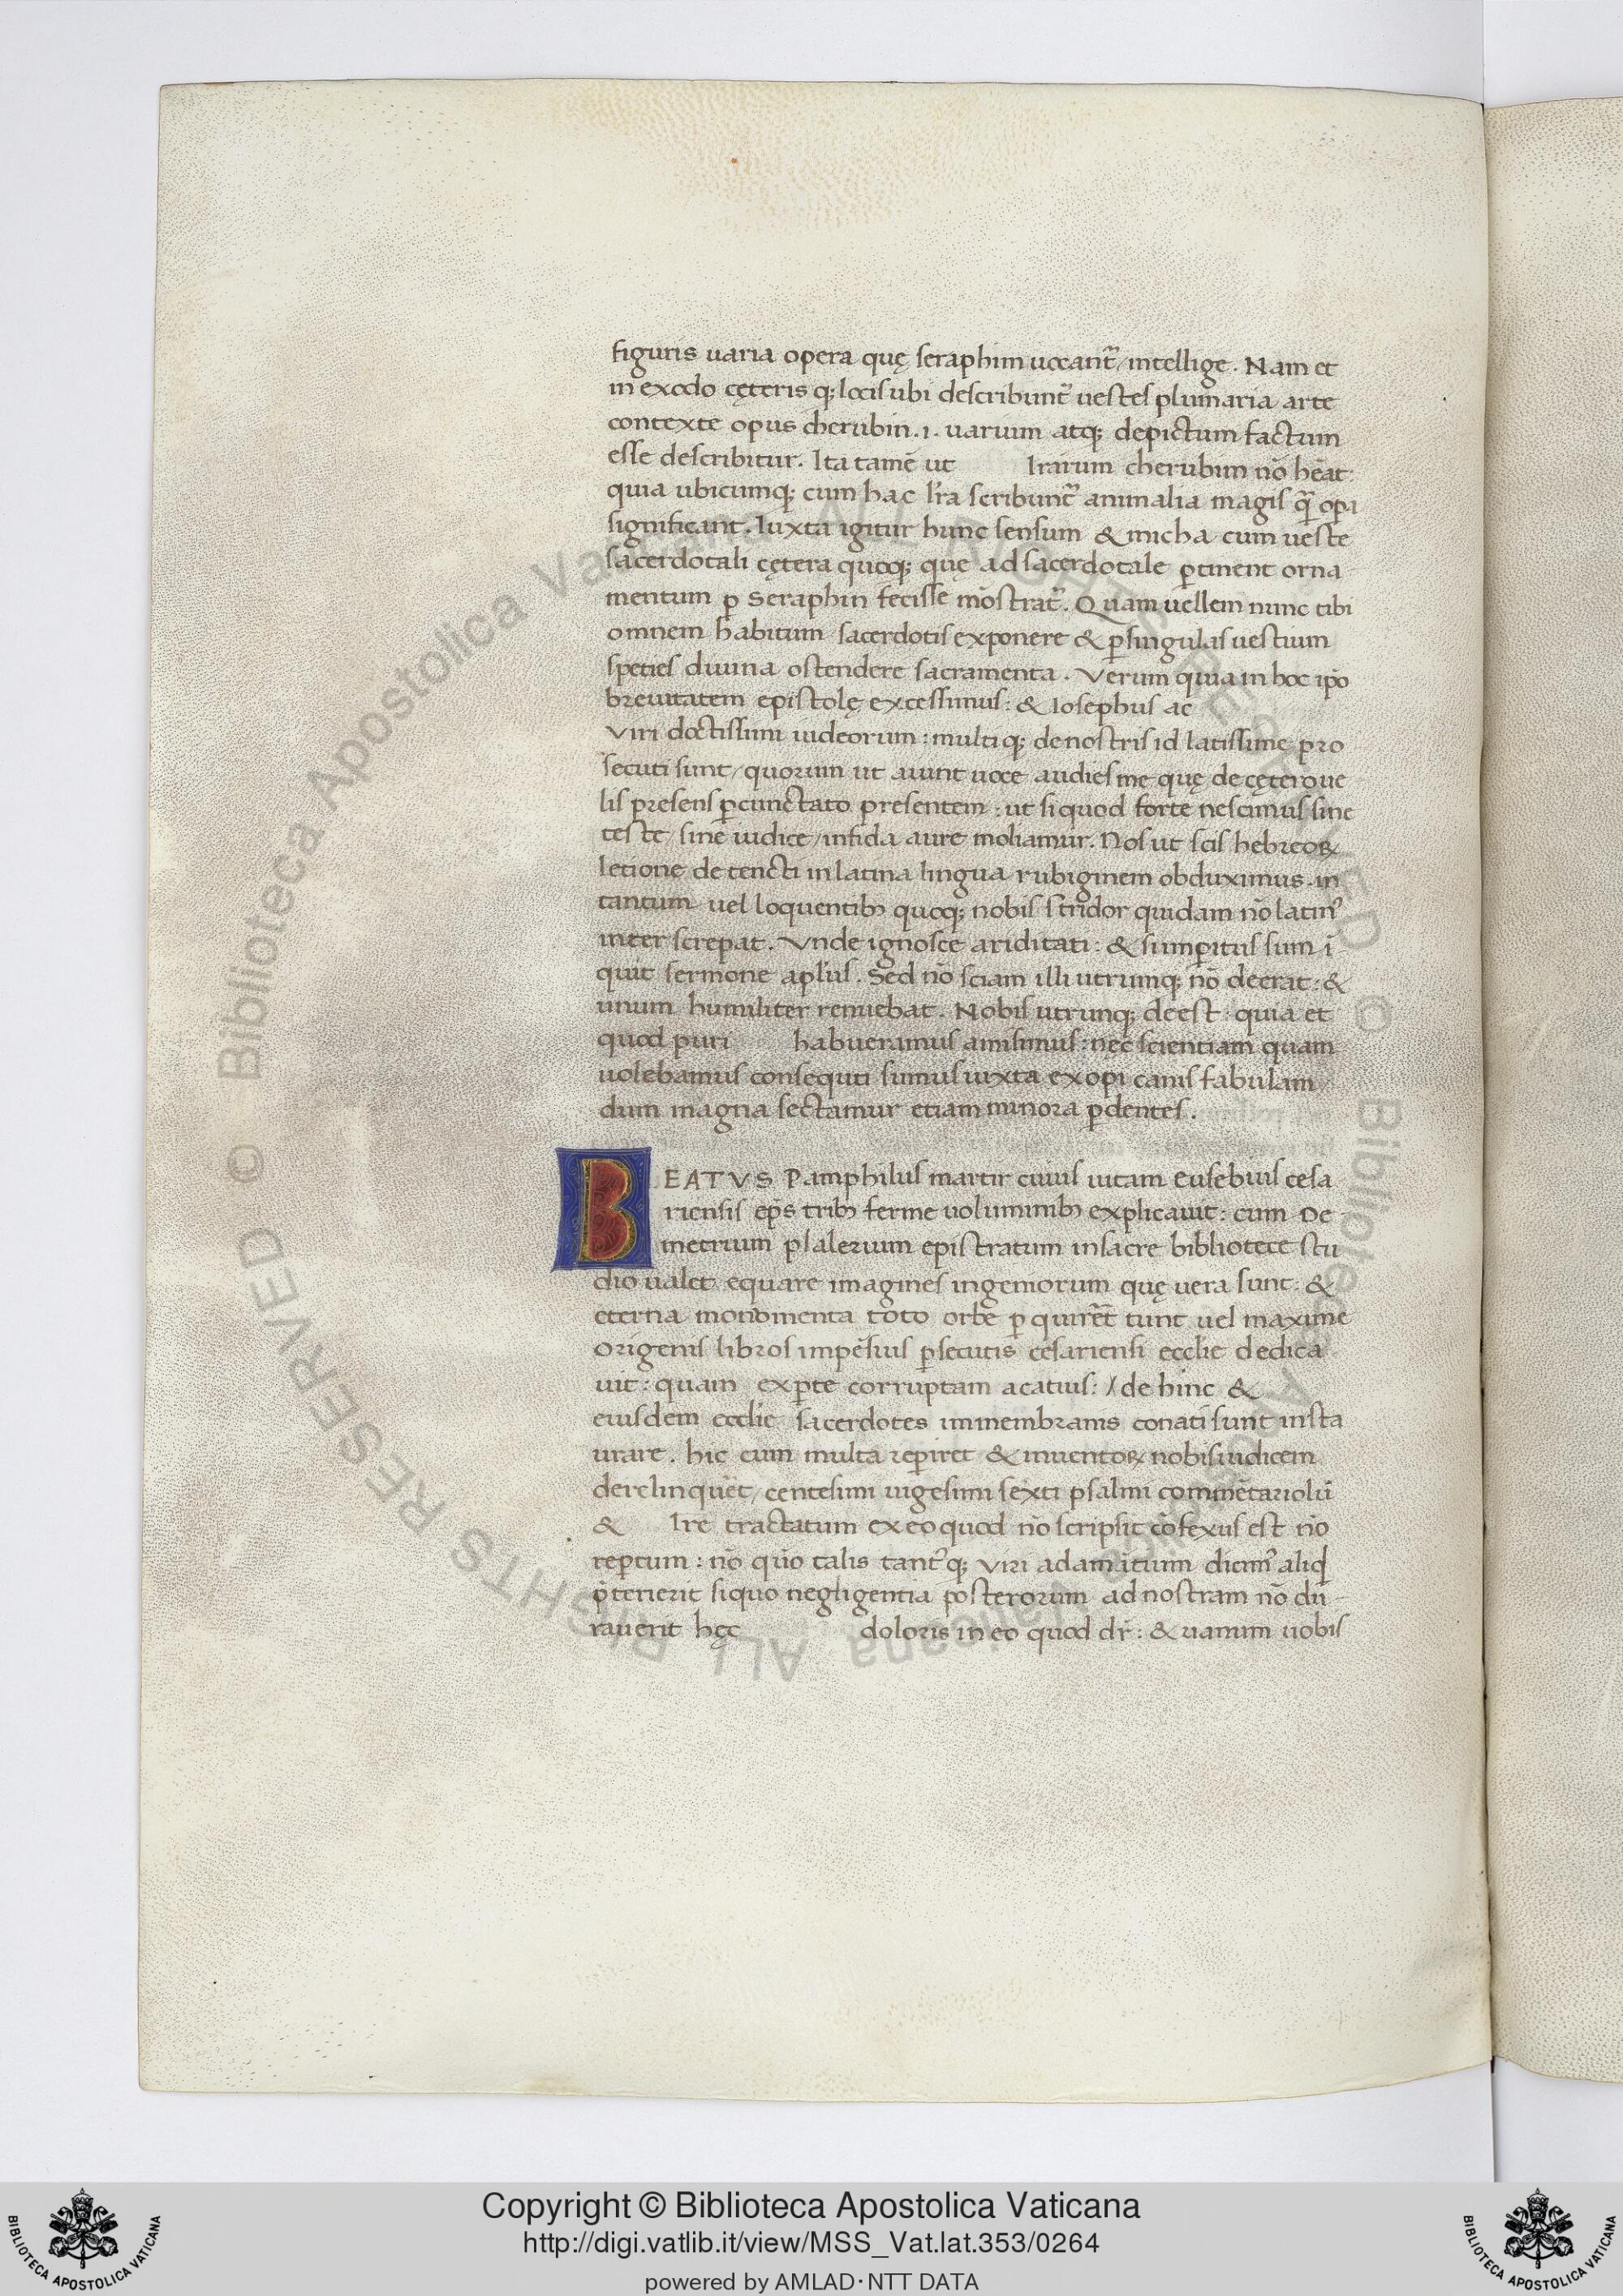 figuris uaria opera quę seraphim uocant᷑ / intellige. Nam et
in exodo cęteris q; locis ubi describunt᷑ uestes plumaria arte
contexte opus cherubin .i. uarium atq; depictum factum
esse describitur. Ita tamē ut lrarum cherubim nō hēat:
quia ubicumq; cum hac lr̄a scribunt᷑ animalia magis q̄ opa
significant. Iuxta igitur hunc sensum & micha cum ueste
sacerdotali cętera quoq; quę ad sacerdotale ꝑtinent orna
mentum ꝑ Seraphin fecisse mōstrat᷑. Quam uellem nunc tibi
omnem habitum sacerdotis exponere & ꝑ singulas uestium
speties diuina ostendere sacramenta. Verum quia in hoc ipō
breuitatem epistolę excessimus: & Iosephus ac
Viri doctissimi iudeorum: multi q; de nostris id latissime pro
secuti sunt / quorum ut aiunt uoce audies me quę de cętero ue
lis presens ꝑcunctato presentem: ut si quod forte nescimus sine
teste / sine iudice / in fida aure moliamur. Nos ut scis hebreoꝝ
letione detencti in latina lingua rubiginem obduximus in
tantum uel loquentibꝫ quoq; nobis stridor quidam nō latin᷒
inter screpat. Vnde ignosce ariditati: & si imꝑitus sum ī
quit sermone apl̄us. Sed nō sciam illi utrumq; nō deerat: &
unum humiliter renuebat. Nobis utrunq; deest: quia et
quod puri habueramus amisimus: nec scientiam quam
uolebamus consequti sumus iuxta exopi canis fabulam /
dum magna sectamur etiam minora ꝑdentes.
BEATVS Pamphilus martir cuius uitam Eusebius cesa
riensis ep̄s tribꝫ ferme uoluminibꝫ explicauit: cum De
metrium psalerium epistratum in sacre bibliotece stu
dio ualet equare imagines ingeniorum quę uera sunt: &
eterna monomenta toto orbe ꝑ quirēt tunt uel maxime
Origenis libros impēsius ꝑsecutis cesariensi ecclie dedica
uit: quam ex ꝑte corruptam acatius: / de hinc &
eiusdem ecclie sacerdotes in membranis conati sunt insta
urare. hic cum multa reꝑiret & inuentoꝝ nobis iudicem
derelinquēt / centesimi uigesimi sexti psalmi commētariolū
& Ire tractatum ex eo quod nō scripsit cōfexus est nō
reꝑtum: nō quo talis tant᷒q; Viri adamātum dicim᷒ aliq̄
p̄terierit si quo negligentia posterorum ad nostram nō dū
rauerit hęc doloris in eo quod dr̄: & uanum uobis
Copyright © Biblioteca Apostolica Vaticana
http://digi.vatlib.it/view/MSS_Vat.lat.353/0264
powered by AMLAD·NTT DATA
BIBLIOTECA APOSTOLICA VATICANA
BIBLIOTECA APOSTOLICA VATICANA
© Biblioteca Apostolica Vaticana ALL RIGHTS RESERVED © Biblioteca Apostolica Vaticana ALL RIGHTS RESERVED